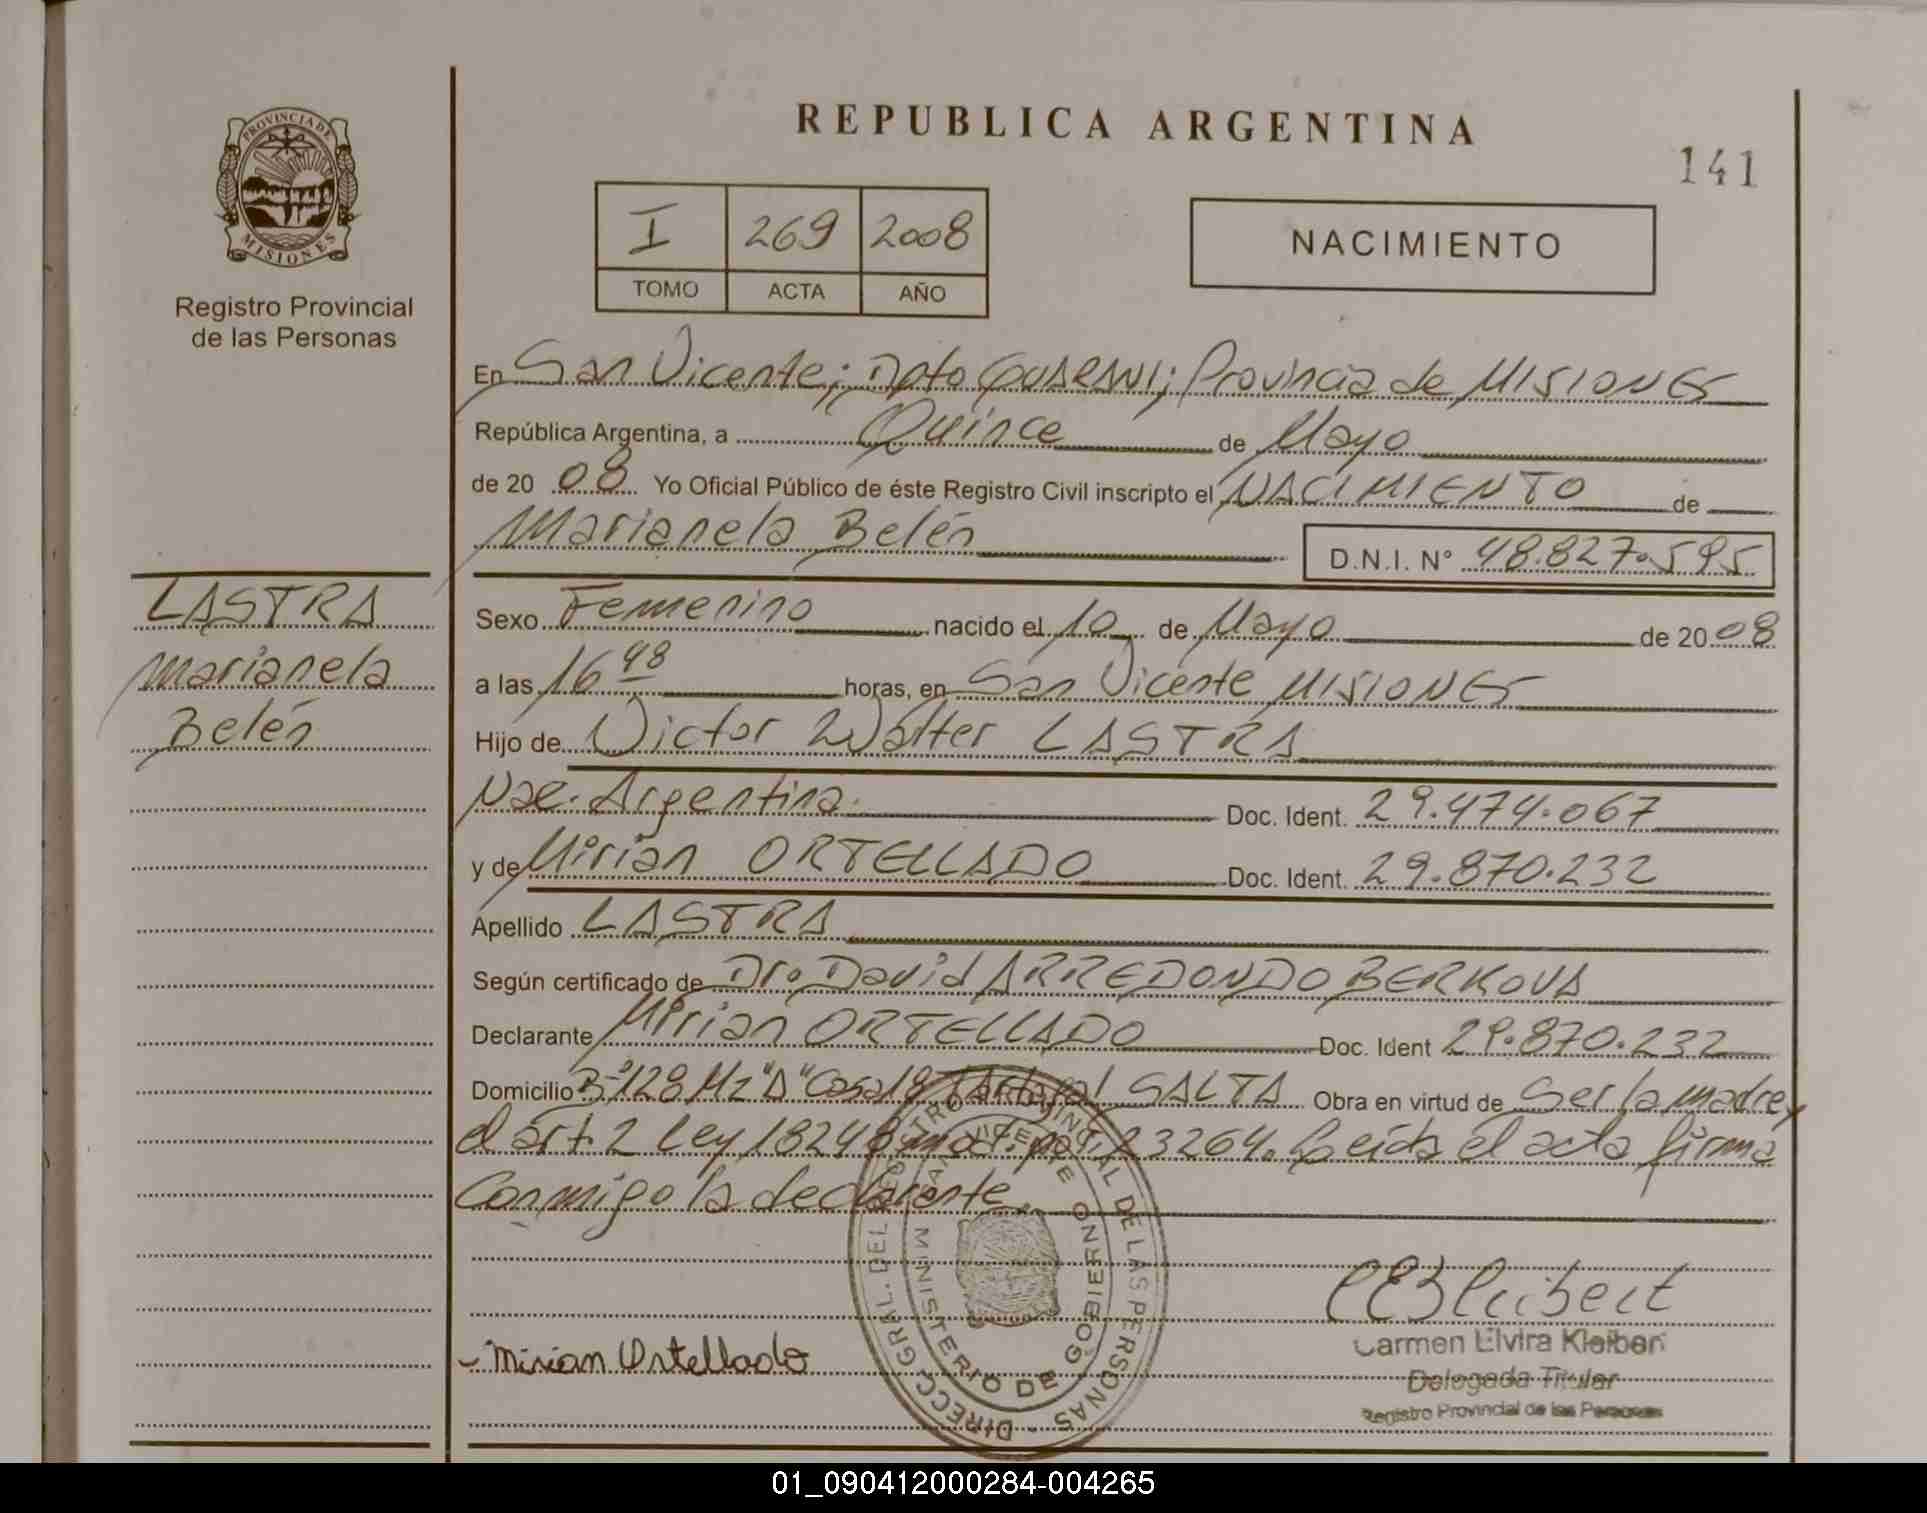 PROVINCIA DE
MISIONES
Registro Provincial
de las Personas
REPUBLICA ARGENTINA
141
I 269 2008
TOMO ACTA AÑO
NACIMIENTO
En San Vicente; Dpto GUARANI; Provincia de MISIONES
República Argentina, a Quince de Mayo
de 20 08 Yo Oficial Público de éste Registro Civil inscripto el NACIMIENTO de
Marianela Belén D.N.I. N° 48.827.595
LASTRA
Marianela
Belén
Sexo Femenino nacido el 10 de Mayo de 20 08
a las 16 48 horas, en San Vicente MISIONES
Hijo de Victor Walter LASTRA
Nac. Argentina. Doc. Ident. 29.474.067
y de Mirian ORTELLADO Doc. Ident. 29.870.232
Apellido LASTRA
Según certificado de Dr. David ARREDONDO BERKOVA
Declarante Mirian ORTELLADO Doc. Ident 29.870.232
Domicilio B° 128 Mz "A" Casa 18 Tartagal SALTA Obra en virtud de Ser la madre y
el art. 2 Ley 18248 23264. Leída el acta firma
Conmigo la declarante.
DIRECC. GRAL. DEL REGISTRO PROVINCIAL DE LAS PERSONAS -
MINISTERIO DE GOBIERNO
SAN VICENTE
Mirian Ortellado
Carmen Elvira Kleiber
Delegada Titular
Registro Provincial de las Personas
01_090412000284-004265